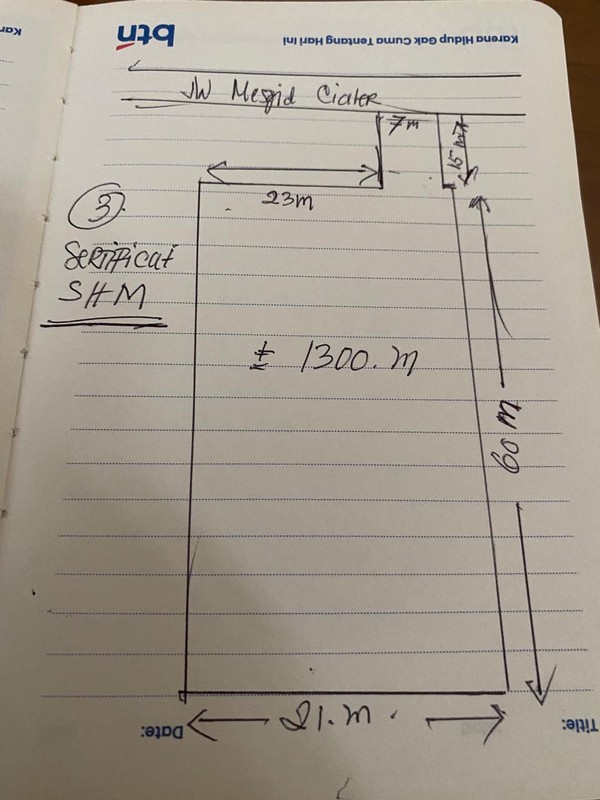 Karena Hidup Gak Cuma Tentang Hari Ini
btn
Kar
JW Mesjid Ciater
7m
15 m
23m
3.
Sertificat
SHM
± 1300. m
60 m
21. m.
Date:
Title: